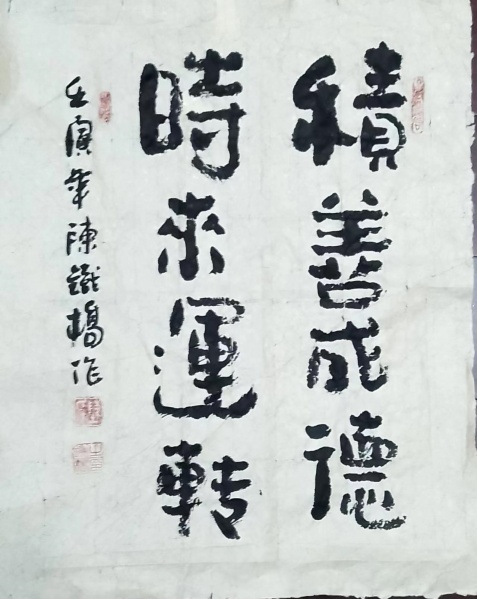 積善成德
時來運转
壬寅年陳鐵橋作